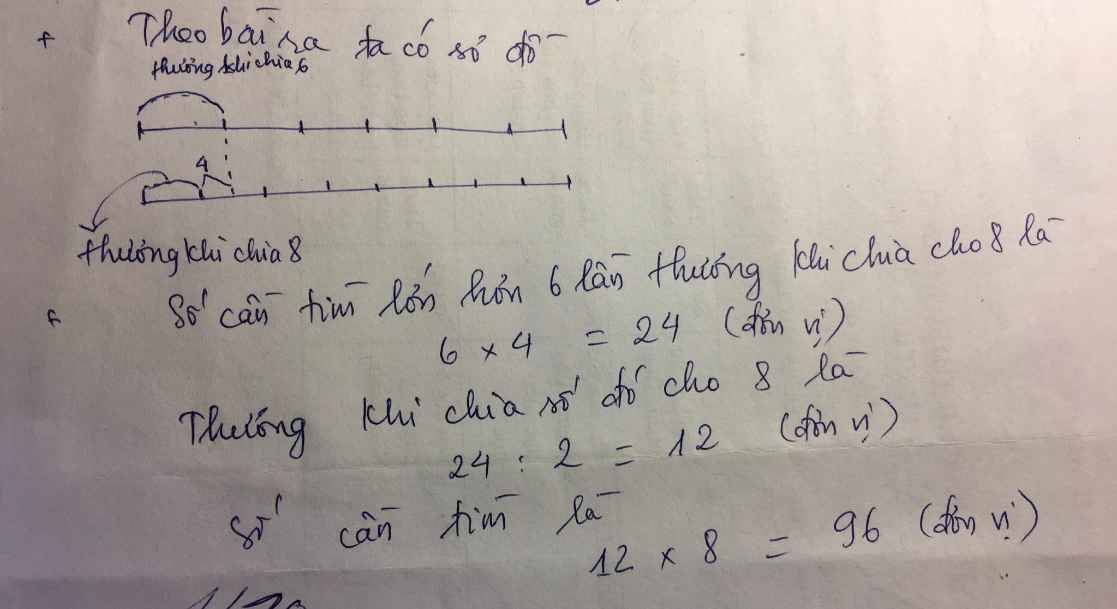 + Theo bài ra ta có sơ đồ
thương khi chia 6
4
thương khi chia 8
+ Số cần tìm lớn hơn 6 lần thương khi chia cho 8 là
6 x 4 = 24 (đơn vị)
Thương khi chia số đó cho 8 là
24 : 2 = 12 (đơn vị)
Số cần tìm là
12 x 8 = 96 (đơn vị)